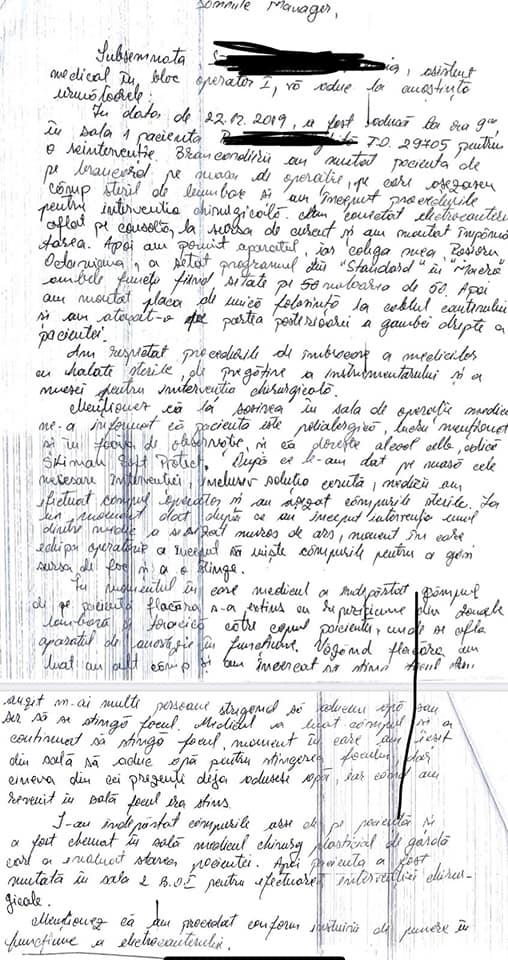 Domnule Manager,
Subsemnata, , asistent
medical în bloc operator I, vă aduc la cunoștință
următoarele:
În data de 22.12.2019, a fost adusă la ora 9
în sala 1 pacienta F.O. 29705 pentru
o reintervenție. Brancardierii au mutat pacienta de
pe brancard pe masa de operație, pe care așezasem
câmp steril de și am început procedurile
pentru intervenția chirurgicală. Am conectat electrocauterul
aflat pe consolă, la sursa de curent și am montat împămân-
tarea. Apoi am pornit aparatul, iar colega mea,
, a setat programul din "Standard" în "Macro"
ambele funcții fiind setate pe 50 de 60. Apoi
am montat placa de unică folosință la cablul cauterului
și am atașat-o pe partea posterioară a gambei drepte a
pacientei.
Am respectat procedurile de îmbrăcare a medicilor
cu halate sterile, de pregătire a instrumentarului și a
mesei pentru intervenția chirurgicală.
Menționez că la sosirea în sala de operație medicii
ne-a informat că pacienta este polialergică, lucru menționat
și în foaia de observație, și că dorește alcool alb, adică
Skiman Soft Protect. După ce le-am dat pe masă cele
necesare intervenției, inclusiv soluția cerută, medicii au
efectuat câmpul operator și au așezat câmpurile sterile. La
un moment dat după ce au început intervenția unul
dintre medici a sesizat miros de ars, moment în care
echipa operatorie a început să miște câmpurile pentru a găsi
sursa de foc și a o stinge.
În momentul în care medicul a îndepărtat câmpul
de pe pacientă flacăra s-a extins cu repeziciune din zonele
lombară și toracică către capul pacientei, unde se afla
aparatul de anestezie în funcțiune. Văzând flacăra am
luat un alt câmp și am încercat să sting focul. Am
auzit m-ai multe persoane strigând să aducem apă sau
ser să se stingă focul. Medicul a luat câmpul și a
continuat să stingă focul, moment în care am ieșit
din sală să aduc apă pentru stingerea focului, dar
cineva din cei prezenți deja adusese apă, iar când am
revenit în sală focul era stins.
S-au îndepărtat câmpurile arse de pe pacientă și
a fost chemat în sală medicul chirurg plastician de gardă
care a evaluat starea pacientei. Apoi pacienta a fost
mutată în sala 2 B.O.I pentru efectuarea intervenției chirur-
gicale.
Menționez că am procedat conform instruirii de punere în
funcțiune a electrocauterului.